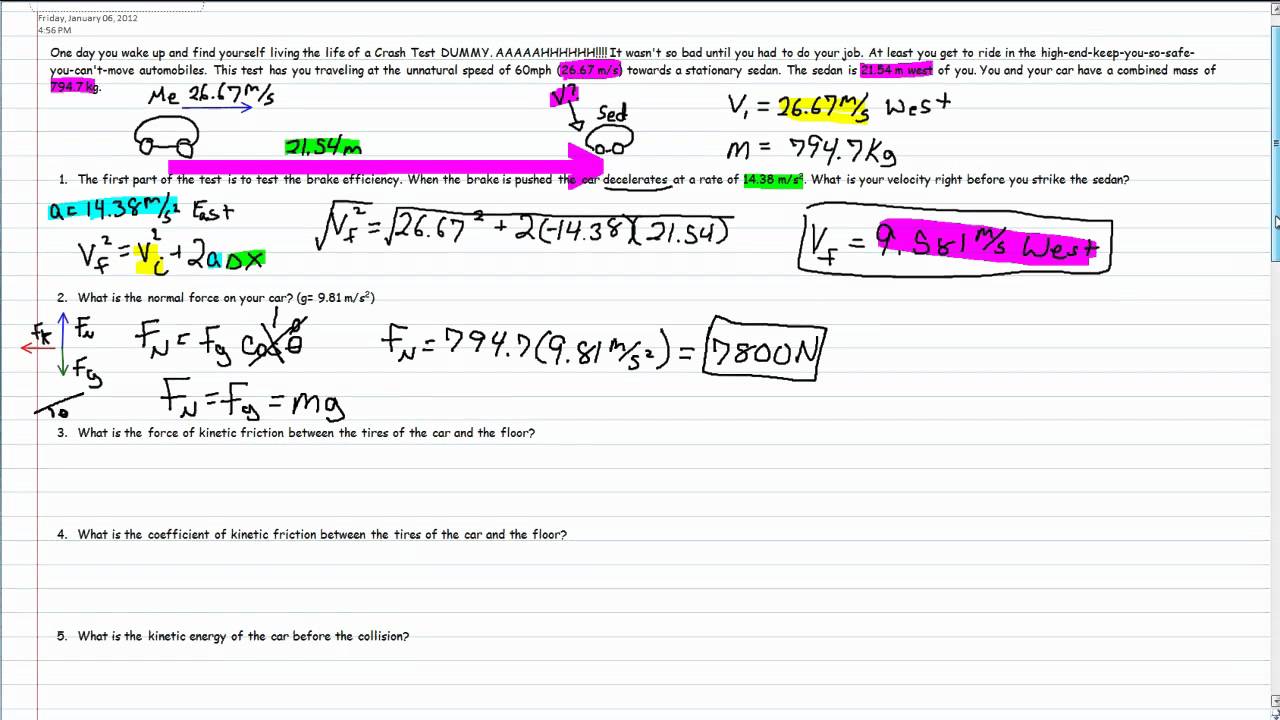 Friday, January 06, 2012
4:56 PM
One day you wake up and find yourself living the life of a Crash Test DUMMY. AAAAAHHHHHH!!!! It wasn't so bad until you had to do your job. At least you get to ride in the high-end-keep-you-so-safe-
you-can't-move automobiles. This test has you traveling at the unnatural speed of 60mph (26.67 m/s) towards a stationary sedan. The sedan is 21.54 m west of you. You and your car have a combined mass of
794.7 kg.
Me 26.67 m/s
V?
Sed
V₁ = 26.67 m/s West
21.54 m
m = 794.7 Kg
1. The first part of the test is to test the brake efficiency. When the brake is pushed the car decelerates at a rate of 14.38 m/s². What is your velocity right before you strike the sedan?
a = 14.38 m/s² East
√Vf² = √26.67² + 2(-14.38)(21.54)
Vf = 9.581 m/s West
Vf² = Vi² + 2aΔx
2. What is the normal force on your car? (g= 9.81 m/s²)
Fk FN Fg
FN = Fg cos θ 1 0
FN = 794.7(9.81 m/s²) = 7800N
FN = Fg = mg
3. What is the force of kinetic friction between the tires of the car and the floor?
4. What is the coefficient of kinetic friction between the tires of the car and the floor?
5. What is the kinetic energy of the car before the collision?